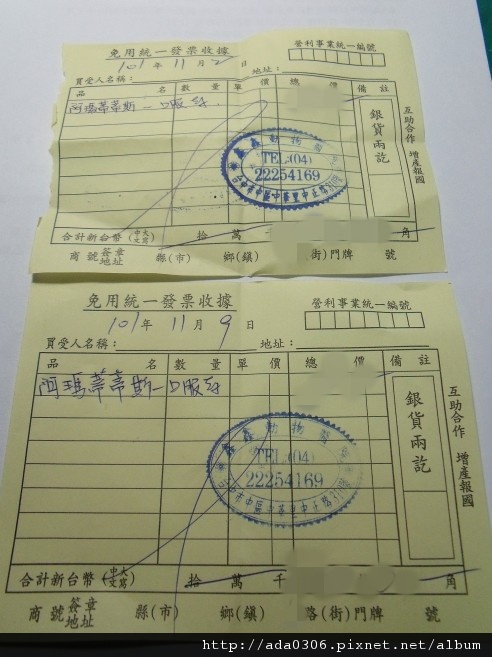 免用統一發票收據
營利事業統一編號
101年 11月 2日
買受人名稱： 地址：
品 名 數 量 單 價 總 價 備 註
阿瑪蒂蒂斯—口服
銀貨兩訖
互助合作 增產報國
動物醫
TEL:(04)
22254169
合計新台幣(中文大寫) 拾 萬 角
商號簽章地址 縣(市) 鄉(鎮) (街)門牌 號
免用統一發票收據
營利事業統一編號
101年 11月 9日
買受人名稱： 地址：
品 名 數 量 單 價 總 價 備 註
阿瑪蒂蒂斯—口服
銀貨兩訖
互助合作 增產報國
動物醫
TEL:(04)
22254169
合計新台幣(中文大寫) 拾 萬 千 角
商號簽章地址 縣(市) 鄉(鎮) 路(街)門牌 號
http://ada0306.pixnet.net/album